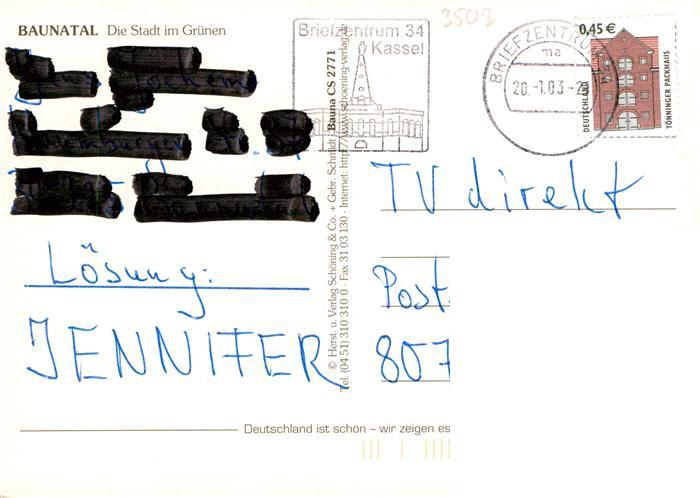 BAUNATAL Die Stadt im Grünen
Lösung:
JENNIFER
© Herst. u. Verlag Schöning & Co. + Gebr. Schmidt Bauna CS 2771
Tel. (04 51) 310 310 0 · Fax 31 03 130 · Internet: http://www.schoening-verlag.de
Briefzentrum 34
Kassel
3502
BRIEFZENTRU
ma
20.-1.03-2
0,45 €
DEUTSCHLAND
TÖNNINGER PACKHAUS
TV direkt
Post
807
Deutschland ist schön – wir zeigen es